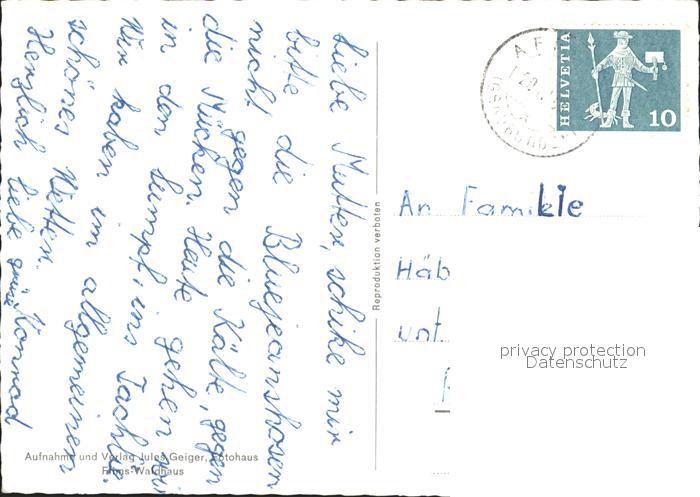 Liebe Mutter, schike mir
bitte die Bluejeanshosen
nicht gegen die Kälte, gegen
die Mücken. Heute gehen wir
in den Sumpf, ins
Wir haben im allgemeinen
schönes Wetter.
Herzlich liebe Konrad
HELVETIA
10
An Familie
Häb
unt.
Reproduktion verboten
Aufnahme und Verlag Jules Geiger, Fotohaus
Flims-Waldhaus
privacy protection
Datenschutz